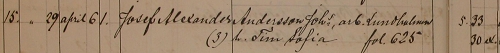 15. " 29 april 61. Josef Alexander Andersson Joh:s, arb. Lundholmen 5. 33
(s) h. Tim Sofia fol 625 30 d.